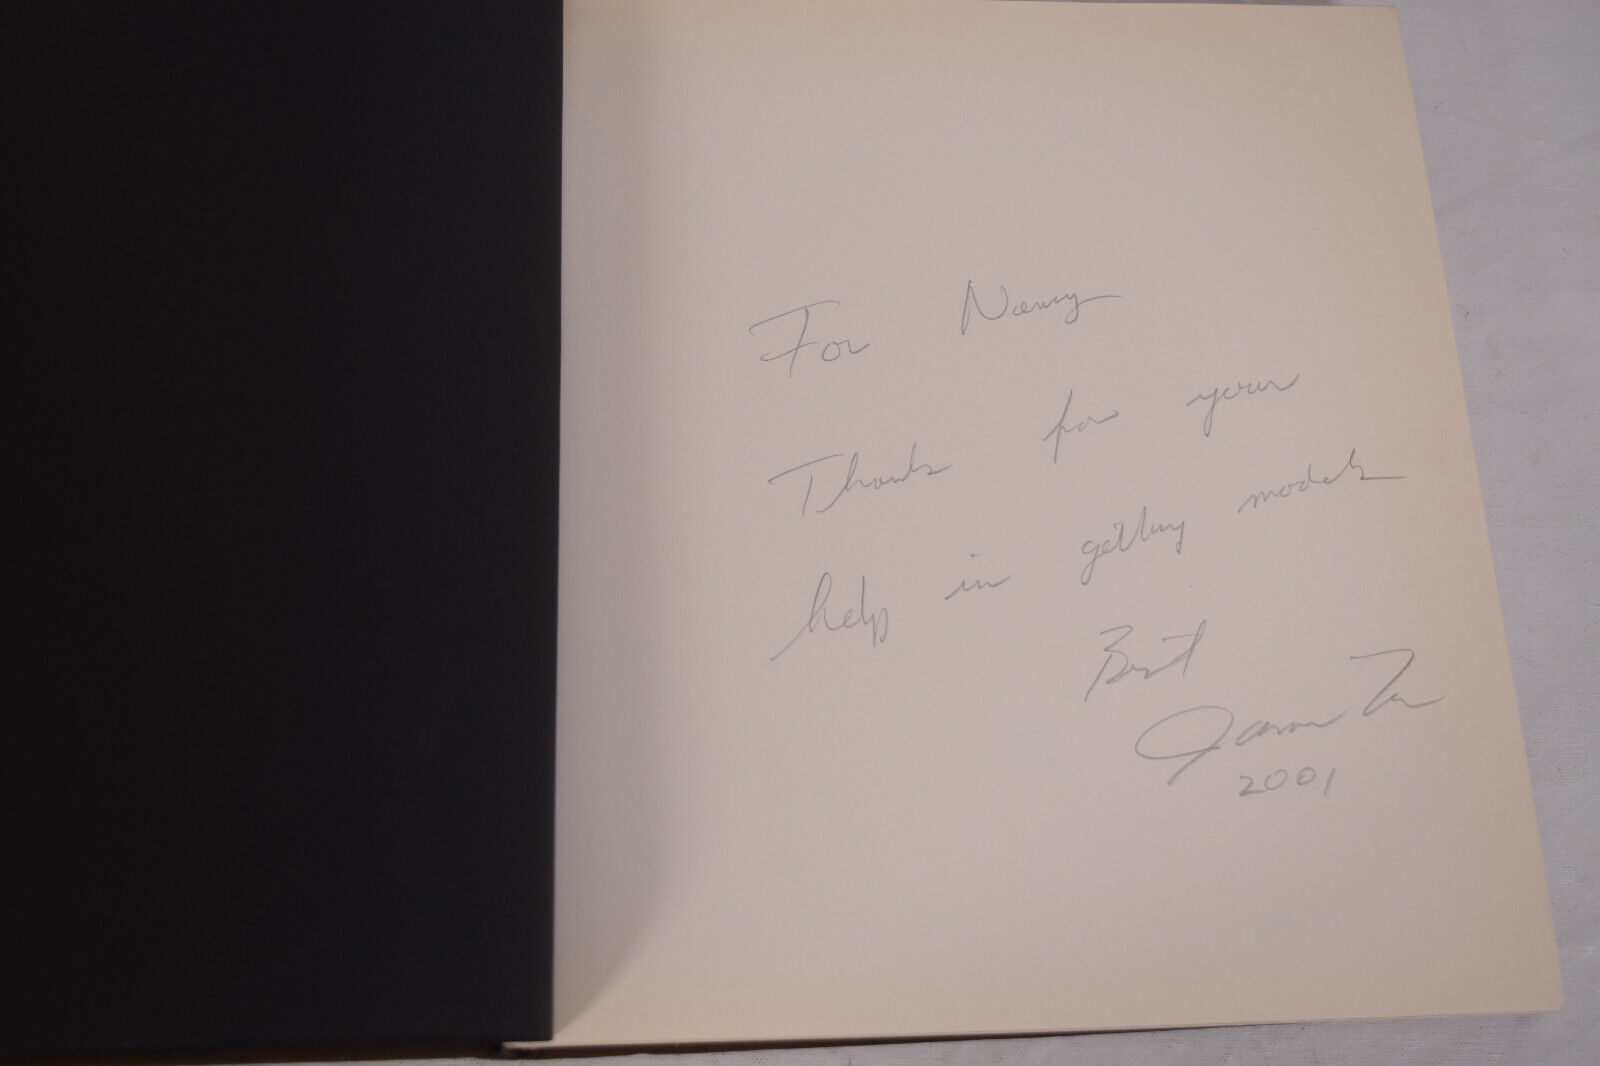 For Nancy
Thanks for your
help in getting models
Best
2001